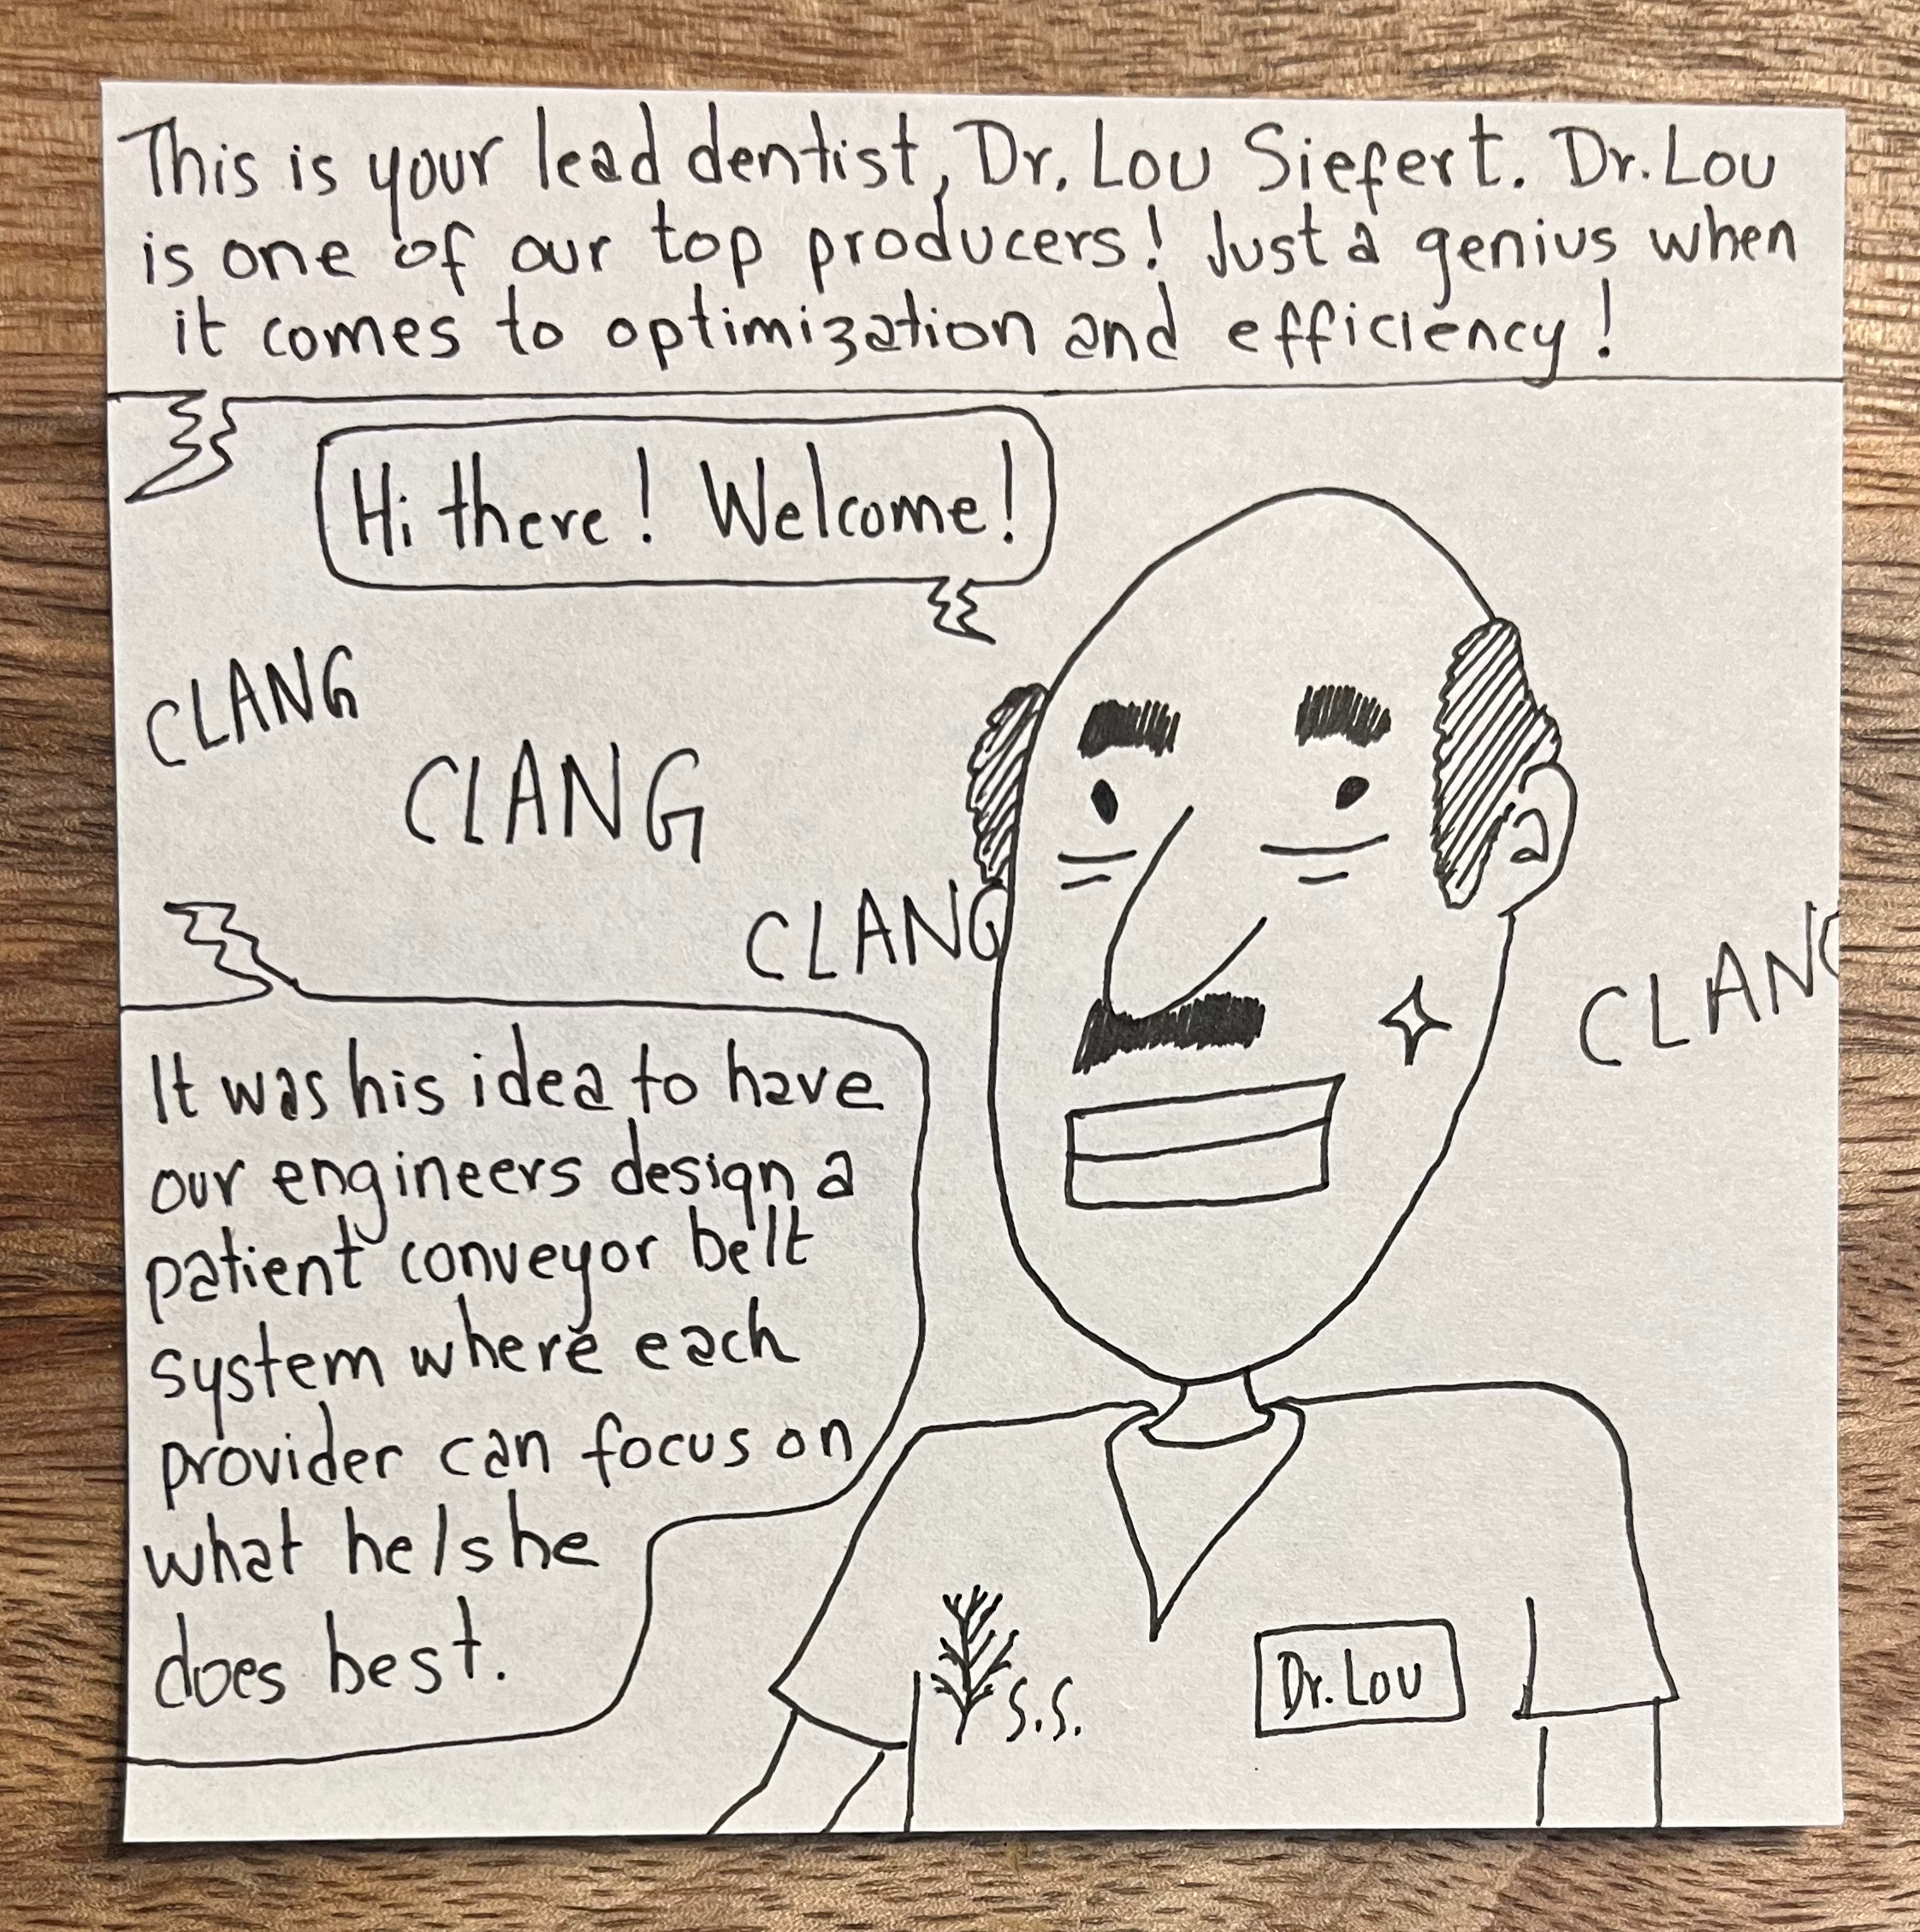 This is your lead dentist, Dr. Lou Siefert. Dr. Lou
is one of our top producers! Just a genius when
it comes to optimization and efficiency!
Hi there! Welcome!
CLANG
CLANG
CLANG
CLANG
It was his idea to have
our engineers design a
patient conveyor belt
system where each
provider can focus on
what he/she
does best.
S.S.
Dr. Lou